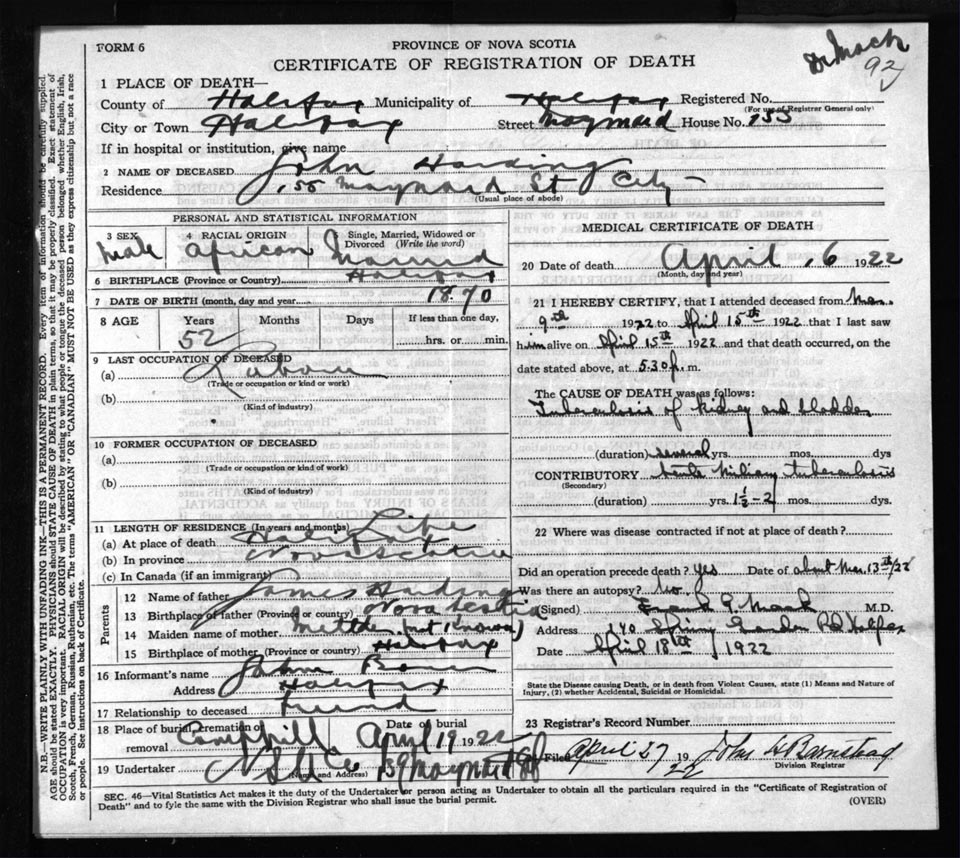 FORM 6
PROVINCE OF NOVA SCOTIA
CERTIFICATE OF REGISTRATION OF DEATH
Dr Mack
92
1 PLACE OF DEATH—
County of Halifax Municipality of Halifax Registered No.
(For use of Registrar General only)
City or Town Halifax Street Maynard House No. 155
If in hospital or institution, give name
2 NAME OF DECEASED John Harding
Residence 155 Maynard St City —
(Usual place of abode)
PERSONAL AND STATISTICAL INFORMATION
3 SEX Male
4 RACIAL ORIGIN African
Single, Married, Widowed or Divorced (Write the word) Married
6 BIRTHPLACE (Province or Country) Halifax
7 DATE OF BIRTH (month, day and year) 1870
8 AGE Years 52 Months Days If less than one day, hrs. or min.
9 LAST OCCUPATION OF DECEASED
(a)
(Trade or occupation or kind or work)
(b)
(Kind of industry)
10 FORMER OCCUPATION OF DECEASED
(a)
(Trade or occupation or kind or work)
(b)
(Kind of industry)
11 LENGTH OF RESIDENCE (In years and months)
(a) At place of death Halifax Life
(b) In province Nova Scotia
(c) In Canada (if an immigrant)
Parents
12 Name of father James Harding
13 Birthplace of father (Province or country) Nova Scotia
14 Maiden name of mother (not known)
15 Birthplace of mother (Province or country) Halifax
16 Informant's name John
Address Halifax
17 Relationship to deceased Friend
18 Place of burial, cremation or removal Camphill Date of burial April 19 1922
19 Undertaker 139 Maynard St
(Name and Address)
MEDICAL CERTIFICATE OF DEATH
20 Date of death April 16 1922
(Month, day and year)
21 I HEREBY CERTIFY, that I attended deceased from Mar.
9th 1922 to April 15th 1922 that I last saw
him alive on April 15th 1922 and that death occurred, on the
date stated above, at 5.30 p. m.
The CAUSE OF DEATH was as follows:
Tuberculosis of kidney and bladder
(duration) several yrs. mos. dys
CONTRIBUTORY acute miliary tuberculosis
(Secondary)
(duration) yrs. 1½-2 mos. dys.
22 Where was disease contracted if not at place of death?
Did an operation precede death? Yes Date of about Mar. 13th/22
Was there an autopsy? No.
(Signed) Frank G. Mack M.D.
Address 140 Spring Garden Rd Halifax
Date April 18th 1922
State the Disease causing Death, or in death from Violent Causes, state (1) Means and Nature of
Injury, (2) whether Accidental, Suicidal or Homicidal.
23 Registrar's Record Number
Filed April 27 1922 John H Barnstead
Division Registrar
SEC. 46—Vital Statistics Act makes it the duty of the Undertaker or person acting as Undertaker to obtain all the particulars required in the "Certificate of Registration of
Death" and to fyle the same with the Division Registrar who shall issue the burial permit.
(OVER)
N.B.—WRITE PLAINLY WITH UNFADING INK—THIS IS A PERMANENT RECORD. Every item of information should be carefully supplied.
AGE should be stated EXACTLY. PHYSICIANS should STATE CAUSE OF DEATH in plain terms, so that it may be properly classified. Exact statement of
OCCUPATION is very important. RACIAL ORIGIN will be described by stating to what people or tongue the deceased person belonged whether English, Irish,
Scotch, French, German, Russian, Ruthenian, etc. The terms "AMERICAN" OR "CANADIAN" MUST NOT BE USED as they express citizenship but not a race
or people. See instructions on back of Certificate.